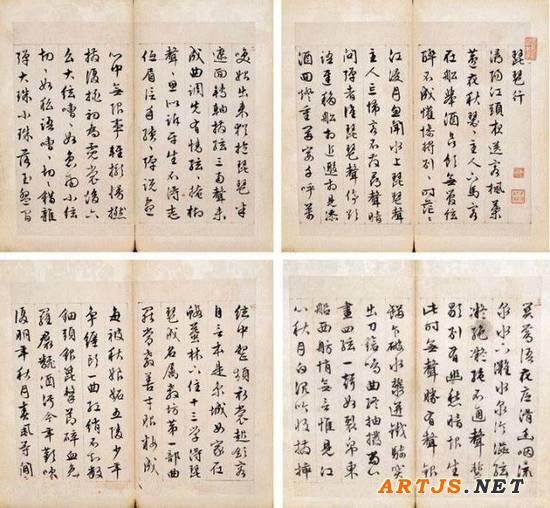 琵琶行
潯陽江頭夜送客楓葉
荻花秋瑟瑟主人下馬客
在船舉酒欲飲無管絃
醉不成懽慘將別別時茫茫
江浸月忽聞水上琵琶聲
主人忘歸客不發尋聲暗
問彈者誰琵琶聲停欲
語遲移船相近邀相見添
酒回燈重開宴千呼萬
喚始出來猶抱琵琶半
遮面轉軸撥絃三兩聲未
成曲調先有情絃絃掩抑
聲聲思似訴平生不得志
低眉信手續續彈說盡
心中無限事輕攏慢撚
撥復挑初為霓裳後六
么大絃嘈嘈如急雨小絃
切切如私語嘈嘈切切錯雜
彈大珠小珠落玉盤間
關鶯語花底滑幽咽流
泉水下灘水泉冷澀絃
凝絕凝絕不通聲暫
歇別有幽愁暗恨生
此時無聲勝有聲銀
瓶乍破水漿迸鐵騎突
出刀鎗鳴曲終抽撥當心
畫四絃一聲如裂帛東
船西舫悄無言惟見江
心秋月白沉吟收撥插
絃中整頓衣裳起斂容
自言本是京城女家在
蝦蟇陵下住十三學得琵
琶成名屬教坊第一部曲
罷常教善才服粧成
每被秋娘妒五陵少年
爭纏頭一曲紅綃不知數
鈿頭銀篦擊節碎血色
羅裙翻酒污今年歡笑
復明年秋月春風等閒
ARTJS.NET